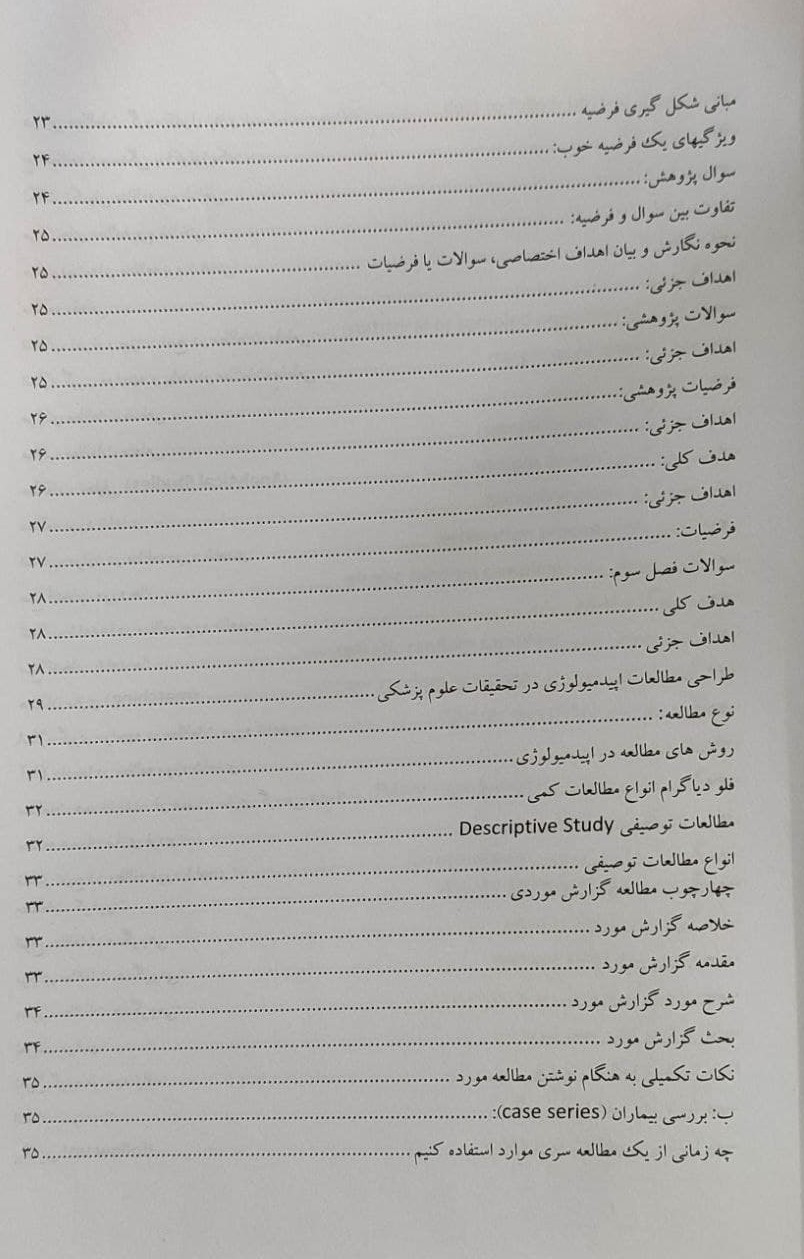 مبانی شکل گیری فرضیه ........ ۲۳
ویژگیهای یک فرضیه خوب: ........ ۲۴
سوال پژوهش: ........ ۲۴
تفاوت بین سوال و فرضیه: ........ ۲۵
نحوه نگارش و بیان اهداف اختصاصی، سوالات یا فرضیات ........ ۲۵
اهداف جزئی: ........ ۲۵
سوالات پژوهشی: ........ ۲۵
اهداف جزئی: ........ ۲۵
فرضیات پژوهشی: ........ ۲۶
اهداف جزئی: ........ ۲۶
هدف کلی: ........ ۲۶
اهداف جزئی: ........ ۲۷
فرضیات: ........ ۲۷
سوالات فصل سوم: ........ ۲۸
هدف کلی ........ ۲۸
اهداف جزئی ........ ۲۸
طراحی مطالعات اپیدمیولوژی در تحقیقات علوم پزشکی ........ ۲۹
نوع مطالعه: ........ ۳۱
روش های مطالعه در اپیدمیولوژی ........ ۳۱
فلو دیاگرام انواع مطالعات کمی ........ ۳۲
مطالعات توصیفی Descriptive Study ........ ۳۲
انواع مطالعات توصیفی ........ ۳۳
چهارچوب مطالعه گزارش موردی ........ ۳۳
خلاصه گزارش مورد ........ ۳۳
مقدمه گزارش مورد ........ ۳۳
شرح مورد گزارش مورد ........ ۳۴
بحث گزارش مورد ........ ۳۴
نکات تکمیلی به هنگام نوشتن مطالعه مورد ........ ۳۵
ب: بررسی بیماران (case series): ........ ۳۵
چه زمانی از یک مطالعه سری موارد استفاده کنیم ........ ۳۵